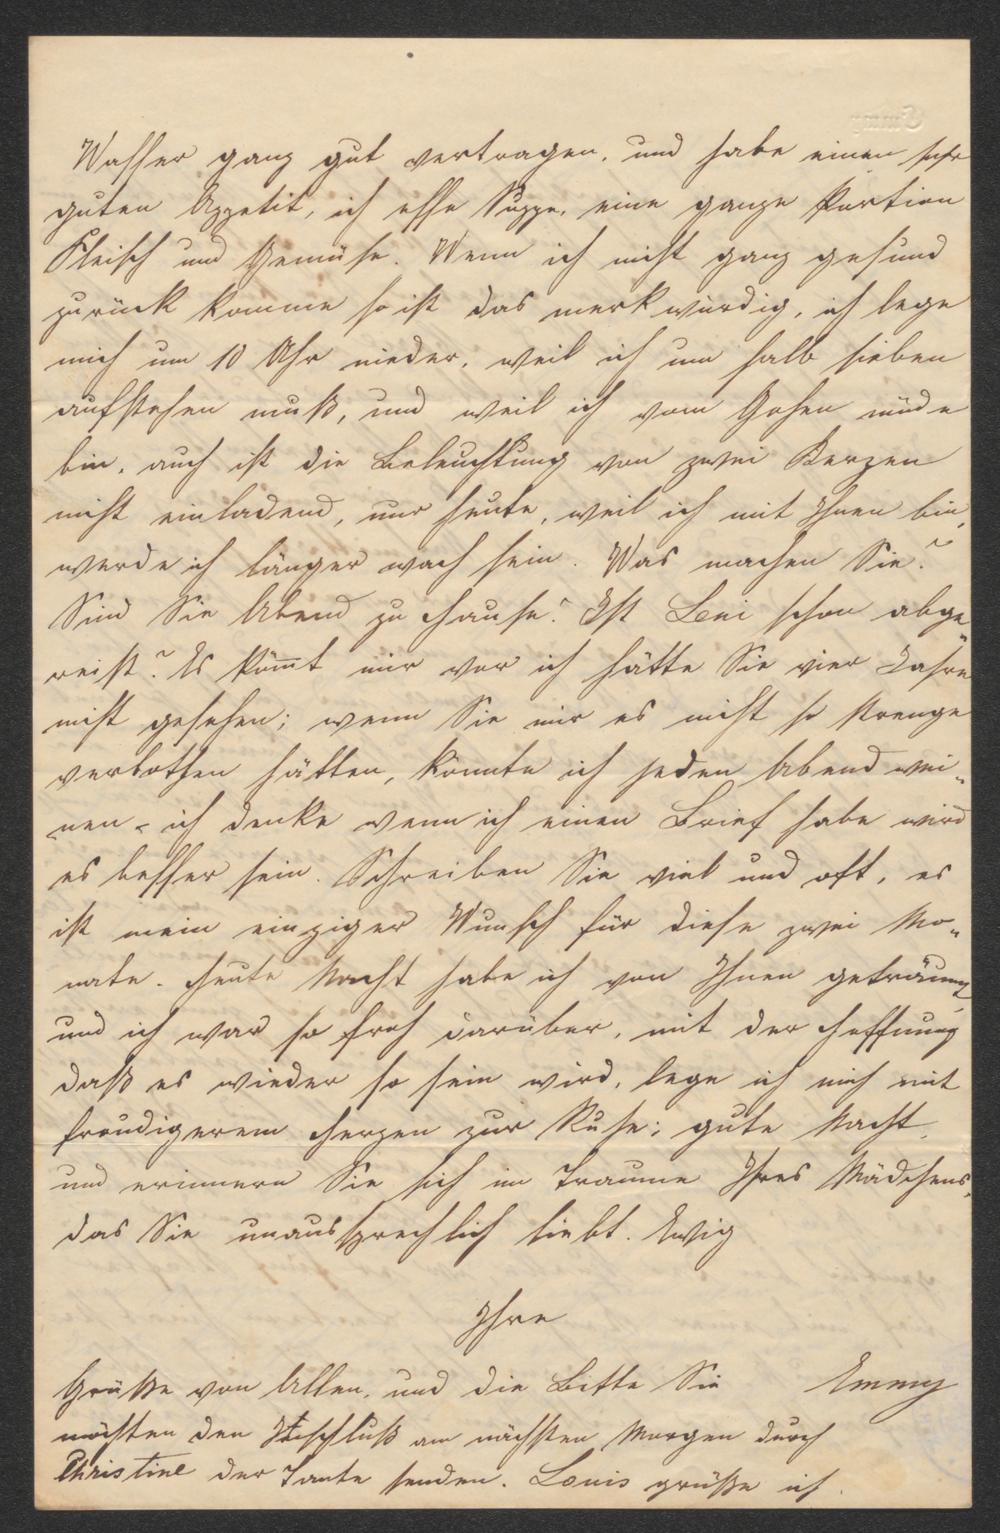 Wasser ganz gut vertragen, und habe einen sehr
guten Appetit, ich esse Suppe, eine ganze Portion
Fleisch und Gemüse. Wenn ich nicht ganz gesund
zurück komme so ist das merkwürdig, ich lege
mich um 10 Uhr nieder, weil ich um halb sieben
aufstehen muß, und weil ich vom Gehen müde
bin, auch ist die Beleuchtung von zwei Kerzen
nicht einladend, nur heute, weil ich mit Ihnen bin,
werde ich länger wach sein. Was machen Sie?
Sind Sie Abend zu Hause? Ist Leni schon abge
reist? Es kom̄t mir vor ich hätte Sie vier Jahre
nicht gesehen; wenn Sie mir es nicht so strenge
verbothen hätten, könnte ich jeden Abend wei„
nen - ich denke wenn ich einen Brief habe wird
es besser sein. Schreiben Sie viel und oft, es
ist mein einziger Wunsch für diese zwei Mo„
nate. Heute Nacht habe ich von Ihnen geträumt
und ich war so froh darüber, mit der Hoffnung
daß es wieder so sein wird, lege ich mich mit
freudigerem Herzen zur Ruhe; gute Nacht,
und erinnern Sie sich im Traume Ihres Mädchens,
das Sie unaussprechlich liebt. Ewig
Ihre
Grüße von Allen, und die Bitte Sie Emmy
möchten den Einschluß am nächsten Morgen durch
Christine der Tante senden. Louis grüße ich.